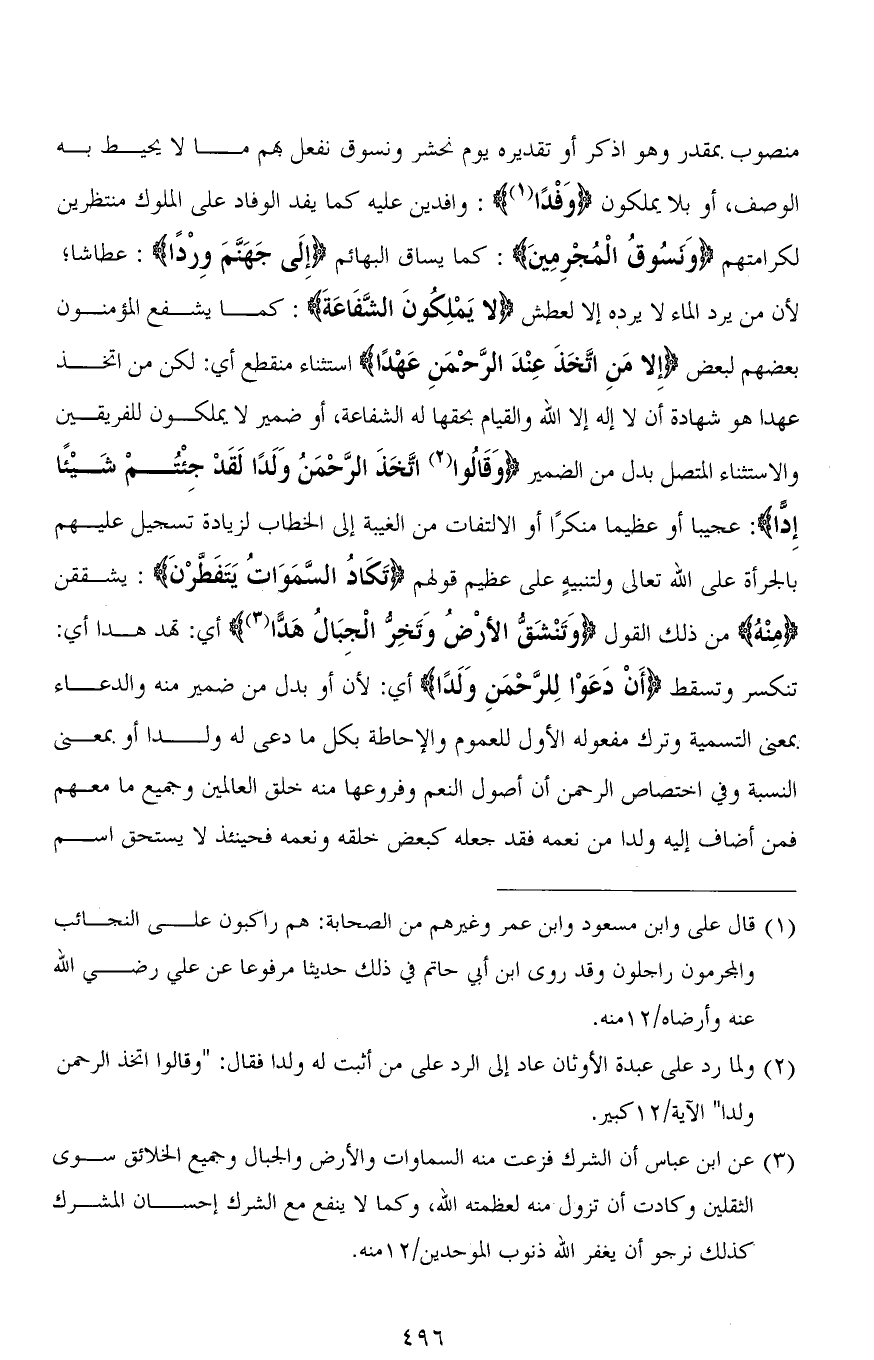 منصوب بمقدر وهو اذكر أو تقديره يوم نحشر ونسوق نفعل بهم مـــا لا يحيـــط بـــه
الوصف، أو بلا يملكون ﴿وَفْدًا(١)﴾ : وافدين عليه كما يفد الوفاد على الملوك منتظرين
لكرامتهم ﴿وَنَسُوقُ الْمُجْرِمِينَ﴾ : كما يساق البهائم ﴿إِلَى جَهَنَّمَ وِرْدًا﴾ : عطاشا؛
لأن من يرد الماء لا يرده إلا لعطش ﴿لا يَمْلِكُونَ الشَّفَاعَةَ﴾ : كمـــا يشـــفع المؤمنـــون
بعضهم لبعض ﴿إِلا مَنِ اتَّخَذَ عِنْدَ الرَّحْمَنِ عَهْدًا﴾ استثناء منقطع أي: لكن من اتخـــذ
عهدا هو شهادة أن لا إله إلا الله والقيام بحقها له الشفاعة، أو ضمير لا يملكـــون للفريقـــين
والاستثناء المتصل بدل من الضمير ﴿وَقَالُوا(٢) اتَّخَذَ الرَّحْمَنُ وَلَدًا لَقَدْ جِئْتُـــمْ شَـــيْئًا
إِدًّا﴾: عجيبا أو عظيما منكرًا أو الالتفات من الغيبة إلى الخطاب لزيادة تسجيل عليـــهم
بالجرأة على الله تعالى ولتنبيهٍ على عظيم قولهم ﴿تَكَادُ السَّمَوَاتُ يَتَفَطَّرْنَ﴾ : يشـــققن
﴿مِنْهُ﴾ من ذلك القول ﴿وَتَنْشَقُّ الأَرْضُ وَتَخِرُّ الْجِبَالُ هَدًّا(٣)﴾ أي: تهد هـــدا أي:
تنكسر وتسقط ﴿أَنْ دَعَوْا لِلرَّحْمَنِ وَلَدًا﴾ أي: لأن أو بدل من ضمير منه والدعـــاء
بمعنى التسمية وترك مفعوله الأول للعموم والإحاطة بكل ما دعى له ولـــدا أو بمعـــنى
النسبة وفي اختصاص الرحمن أن أصول النعم وفروعها منه خلق العالمين وجميع ما معـــهم
فمن أضاف إليه ولدا من نعمه فقد جعله كبعض خلقه ونعمه فحينئذ لا يستحق اســـم
(١) قال على وابن مسعود وابن عمر وغيرهم من الصحابة: هم راكبون علـــى النجـــائب
والمجرمون راجلون وقد روى ابن أبي حاتم في ذلك حديثا مرفوعا عن علي رضـــي الله
عنه وأرضاه/١٢منه.
(٢) ولما رد على عبدة الأوثان عاد إلى الرد على من أثبت له ولدا فقال: "وقالوا اتخذ الرحمن
ولدا" الآية/١٢كبير.
(٣) عن ابن عباس أن الشرك فزعت منه السماوات والأرض والجبال وجميع الخلائق ســـوى
الثقلين وكادت أن تزول منه لعظمته الله، وكما لا ينفع مع الشرك إحســـان المشـــرك
كذلك نرجو أن يغفر الله ذنوب الموحدين/١٢منه.
٤٩٦